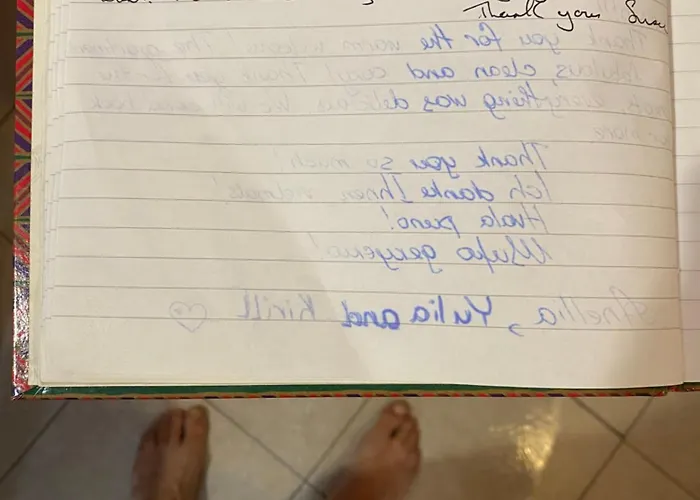 Thank you
Thank you for the warm welcome! The
fabulous, clean and cozy! Thank you for
everything was delicious. We will come back
for more
Thank you so much!
Ich danke Ihnen vielmals!
Hvala puno!
Щиро дякуємо!
Anellia, Yulia and Kirill ♡